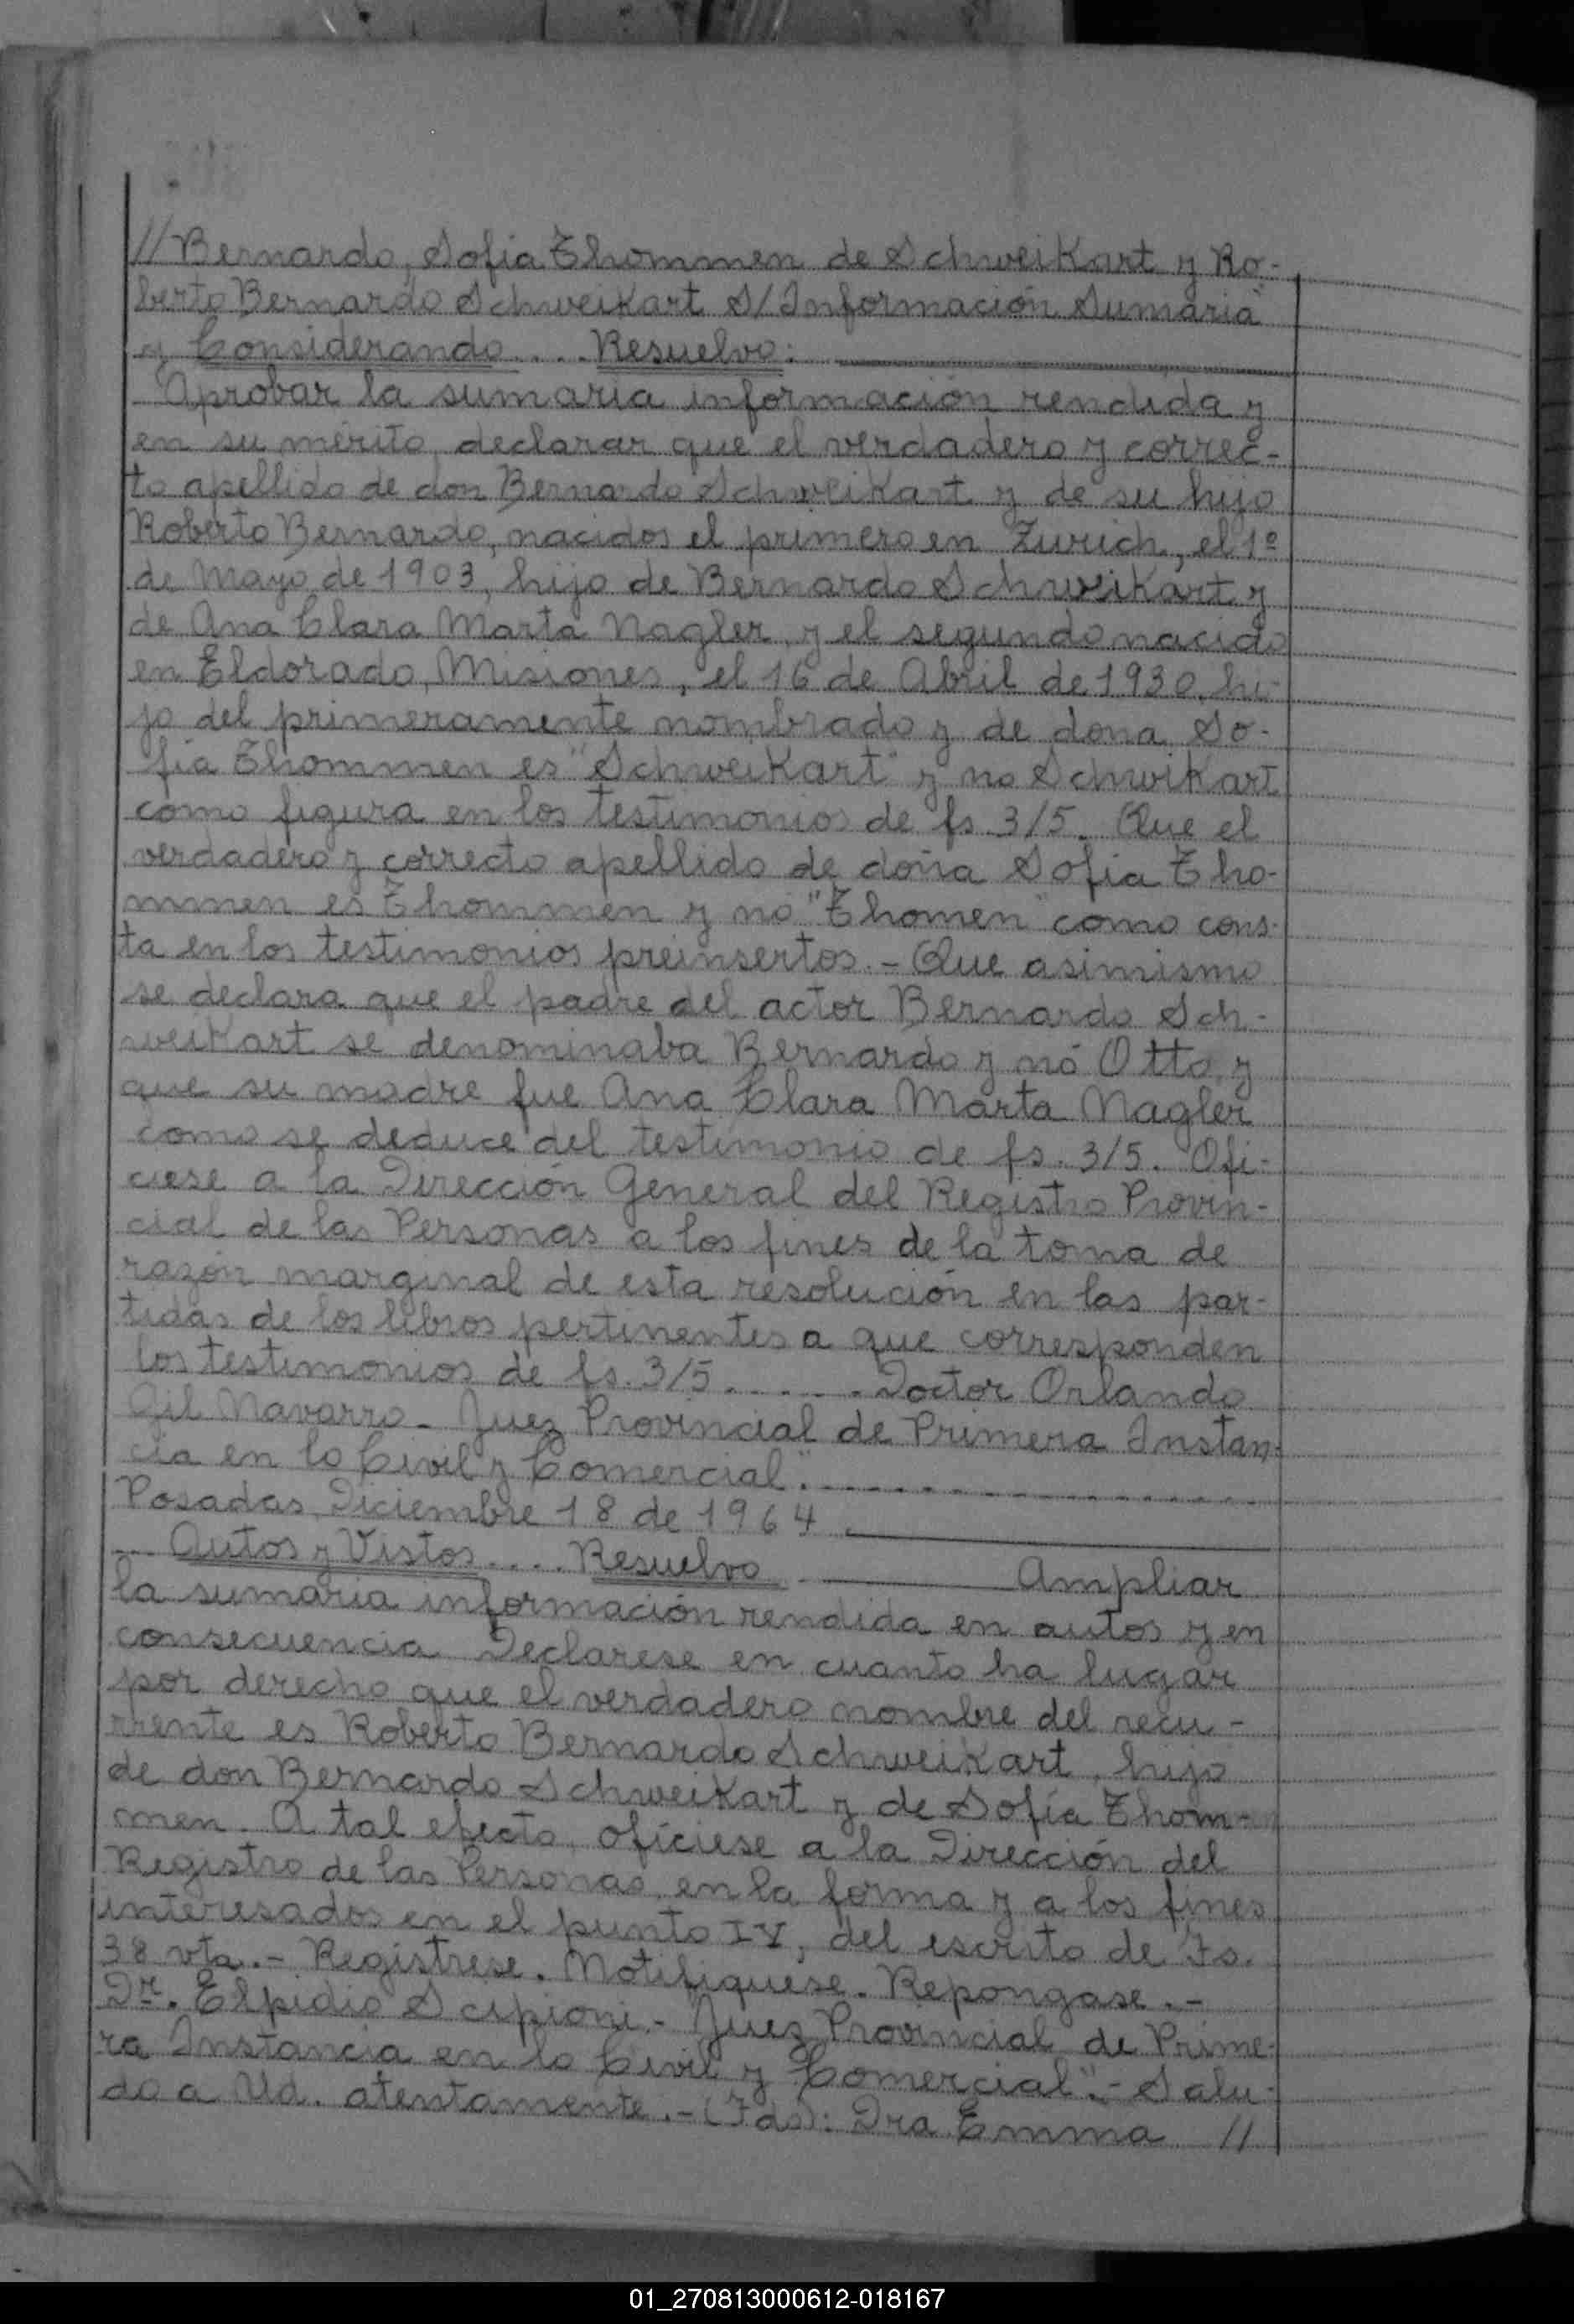 // Bernardo, Sofia Thommen de Schweikart y Ro-
berto Bernardo Schweikart S/ Información Sumaria"
y Considerando.... Resuelvo:
Aprobar la sumaria información rendida y
en su mérito, declarar que el verdadero y correc-
to apellido de don Bernardo Schweikart y de su hijo
Roberto Bernardo, nacidos el primero en Zurich, el 1º
de Mayo de 1903, hijo de Bernardo Schweikart y
de Ana Clara Marta Nagler, y el segundo nacido
en Eldorado, Misiones, el 16 de Abril de 1930, hi-
jo del primeramente nombrado y de doña So-
fia Thommen es "Schweikart" y no Schwikart
como figura en los testimonios de fs. 3/5. Que el
verdadero y correcto apellido de doña Sofia Tho-
mmen es Thommen y no "Thomen" como cons-
ta en los testimonios preinsertos.- Que asimismo
se declara que el padre del actor Bernardo Sch-
weikart se denominaba Bernardo y nó Otto, y
que su madre fue Ana Clara Marta Nagler
como se deduce del testimonio de fs. 3/5. Ofi-
ciese a la Dirección General del Registro Provin-
cial de las Personas a los fines de la toma de
razón marginal de esta resolución en las par-
tidas de los libros pertinentes a que corresponden
los testimonios de fs. 3/5...... Doctor Orlando
Gil Navarro - Juez Provincial de Primera Instan-
cia en lo Civil y Comercial".
Posadas, Diciembre 18 de 1964
... Autos y Vistos.... Resuelvo Ampliar
la sumaria información rendida en autos y en
consecuencia Declarese en cuanto ha lugar
por derecho que el verdadero nombre del recu-
rrente es Roberto Bernardo Schweikart, hijo
de don Bernardo Schweikart y de Sofía Thom-
men. A tal efecto, ofíciese a la Dirección del
Registro de las Personas, en la forma y a los fines
interesados en el punto IV, del escrito de Fs.
38 vta.- Regístrese. Notifiquese. Repongase.-
Dr. Elpidio Scipioni.- Juez Provincial de Prime-
ra Instancia en lo Civil y Comercial".- Salu-
do a Ud. atentamente.- (Fdo): Dra. Emma //
01_270813000612-018167